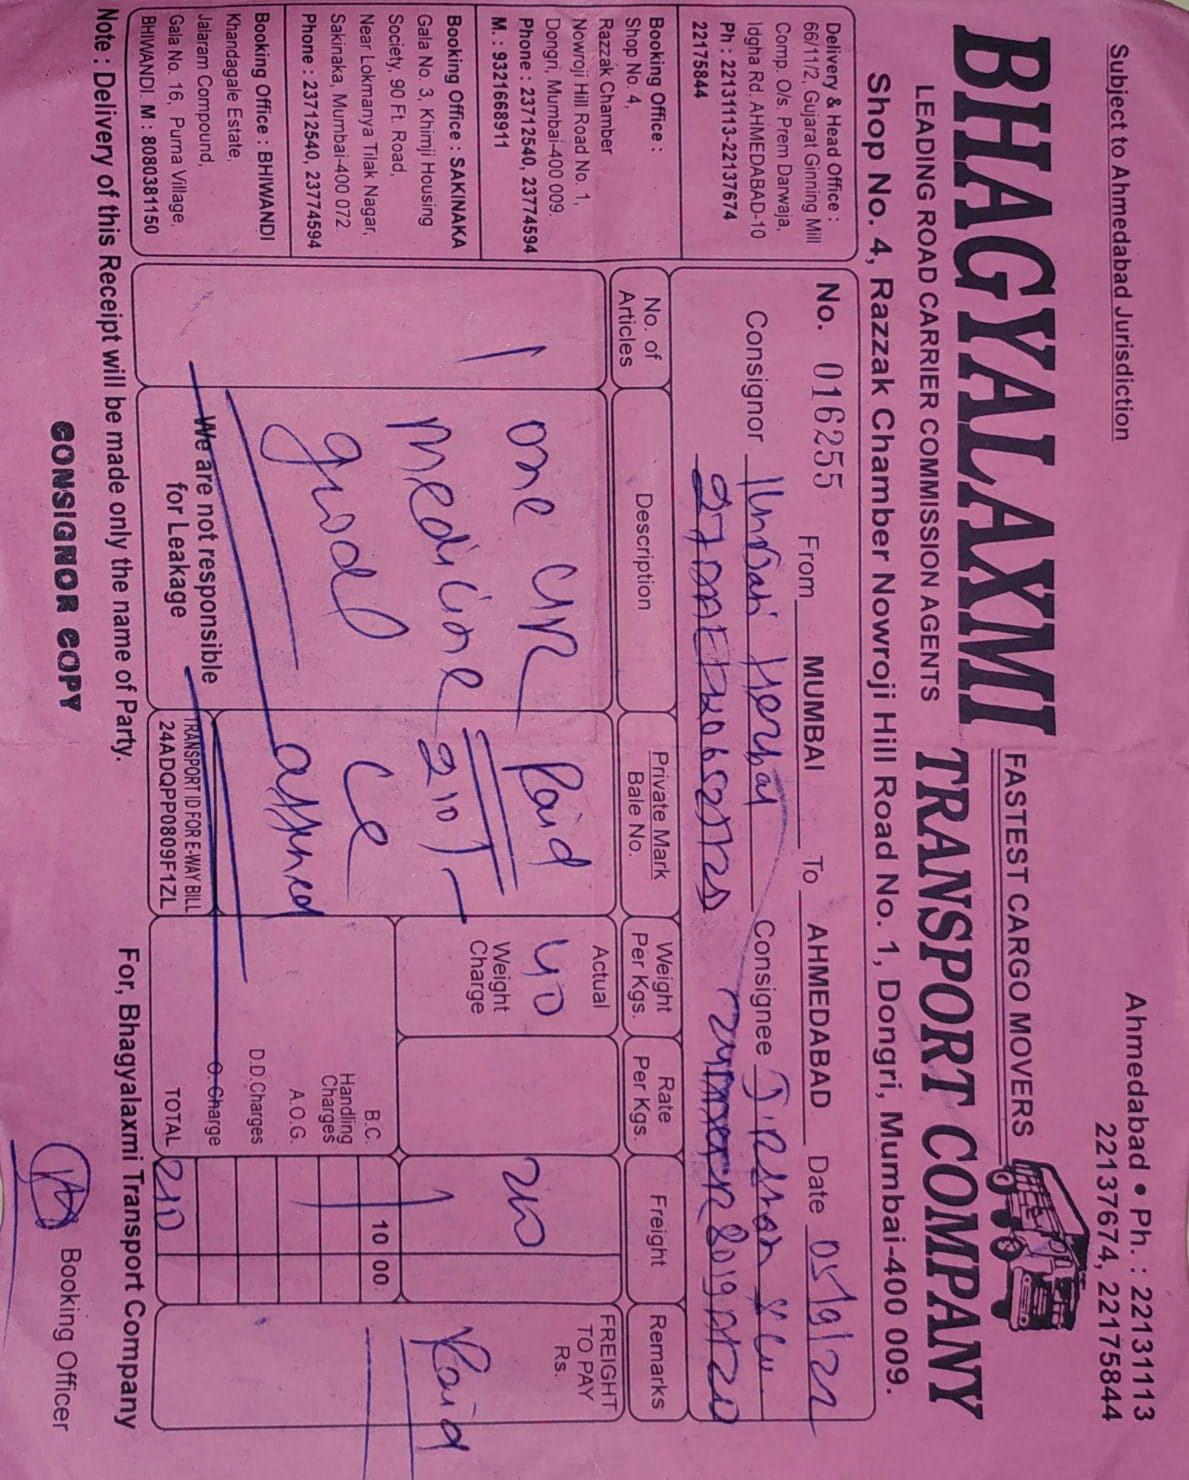 Subject to Ahmedabad Jurisdiction
Ahmedabad • Ph. : 22131113
22137674, 22175844
FASTEST CARGO MOVERS
BHAGYALAXMI TRANSPORT COMPANY
LEADING ROAD CARRIER COMMISSION AGENTS
Shop No. 4, Razzak Chamber Nowroji Hill Road No. 1, Dongri, Mumbai-400 009.
Delivery & Head Office :
66/11/2, Gujarat Ginning Mill
Comp. O/s. Prem Darwaja,
Idgha Rd. AHMEDABAD-10
Ph : 22131113-22137674
22175844
No. 016255 From MUMBAI To AHMEDABAD Date 05/9/22
Consignor Herbal Consignee
Booking Office :
Shop No. 4,
Razzak Chamber
Nowroji Hill Road No. 1,
Dongri, Mumbai-400 009.
Phone : 23712540, 23774594
M. : 9321668911
Booking Office : SAKINAKA
Gala No. 3, Khimji Housing
Society, 90 Ft. Road,
Near Lokmanya Tilak Nagar,
Sakinaka, Mumbai-400 072.
Phone : 23712540, 23774594
Booking Office : BHIWANDI
Khandagale Estate,
Jalaram Compound,
Gala No. 16, Purna Village,
BHIWANDI. M : 8080381150
No. of Articles
Description
Private Mark
Bale No.
Weight
Per Kgs.
Rate
Per Kgs.
Freight
Remarks
1
one
medicine
good
Paid
210
Actual
40
Weight
Charge
210
FREIGHT
TO PAY
Rs.
Paid
B.C. 10 00
Handling
Charges
A.O.G.
D.D.Charges
O. Charge
TOTAL 210
We are not responsible
for Leakage
TRANSPORT ID FOR E-WAY BILL
24ADQPP0809F1ZL
Note : Delivery of this Receipt will be made only the name of Party.
For, Bhagyalaxmi Transport Company
CONSIGNOR COPY
Booking Officer